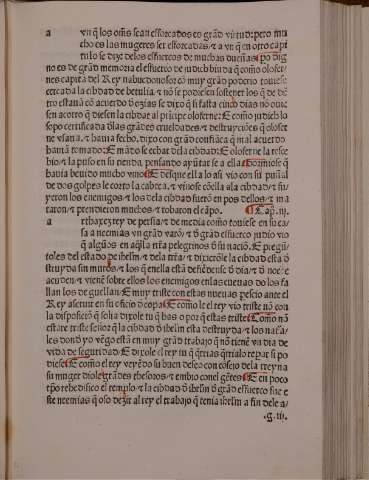 a vn q̃ los om̃s sean esforcados es grãd virtud: pero mu
cho es las mugeres ser esforcadas / ⁊ a vn q̃ en otro capi
tulo se dize delos esfuercos de muchas dueñas / po dig
no es de grãd memoria el esfuerco de judich biuda q̃ como olofer-
nes capitã del Rey nabucdonosor cõ muy grãd poderio touiese
cercada la cibdad de betulia / ⁊ nõ se podiesen sostener los q̃ de dẽ
tro estauã cõ acuerdo de ozias se dixo q̃ si fasta cinco dias nõ ouie
sen acorro q̃ diesen la cibdat al prícipe oloferne: E como judich lo
sopo certificada dlas grãdes crueldades / ⁊ destruyciões q̃ olofer
ne vsaua / ⁊ hauia fecho, dixo con grãd confiãca q̃ mal acuerdo
hauiã tomado: E mãdose echar dela cibdad: E oloferne la resce
bio / ⁊ la puso en su tienda, pensando ayũtar se a ella: Dormiose q̃
hauia beuido mucho vino: E desque ella lo asi vio con su puñal
de dos golpes le corto la cabeca, ⁊ vinose cõella ala cibdad / ⁊ fu
yeron los enemigos / ⁊ los dela cibdad fuerõ en pos dellos / ⁊ ma
taron / ⁊ prendieron muchos / ⁊ robaron el cãpo. Cap. iij.
a rthaxerxes rey de persia / ⁊ de media como touiese en su ca
sa a neemias vn grãd varõ / ⁊ d' grãd esfuerco judio vio
q̃ algũos en aq̃lla trr̃a pelegrinos d' su naciõ. E pregũ
toles del estado de ihrlm̃ / ⁊ dela trr̃a / ⁊ dixierõle la cibdad esta d'
struyda sin muros / ⁊ los q̃ enella estã defiẽdense d' dia / ⁊ d' noche
acuden / ⁊ vienẽ sobre ellos los enemigos enlas cueuas do los fa
llan los de guellan: E muy triste con estas nueuas pescio ante el
Rey aseruir en su oficio de copa: E como le el rey vio triste nõ con
la disposiciõ q̃ solia dixole tu q̃ has o por q̃ estas triste: Como nõ
estare triste señor q̃ la cibdad d' ihrlm̃ esta destruyda / ⁊ los nat'a-
les dond yo vẽgo estã en muy grãd trabajo q̃ nõ tienẽ vn dia de
vida de seguridad: E dixole el rey tu q̃rrias q̃ría lo reparar si po
diese: E como el rey veyẽdo su buen deseo con cõsejo dela reyna
su muger diole grãdes thesoros / ⁊ embio conel gẽtes: E en poco
tp̃o rehedifico el templo / ⁊ la cibdad d' ihrlm̃ d' grãd esfuerco fue e
ste neemias q̃ oso dezir al rey el trabajo q̃ tenia ihrlm̃ a fin dele a-
.g. iij.